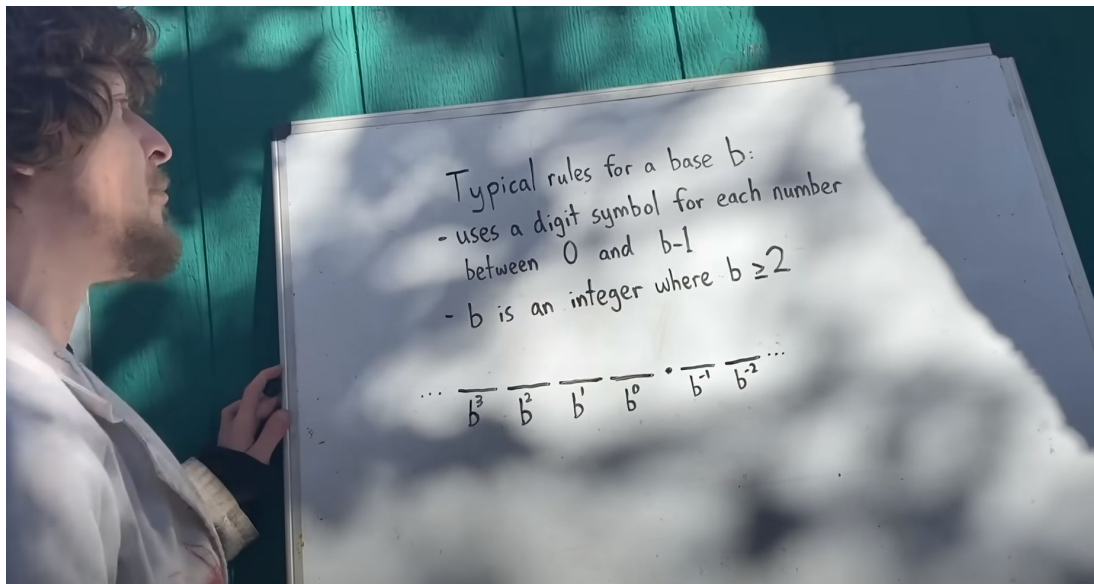 Typical rules for a base b:
- uses a digit symbol for each number
between 0 and b-1
- b is an integer where b ≥ 2
... __ __ __ __ . __ __ ...
b³ b² b¹ b⁰ b⁻¹ b⁻²